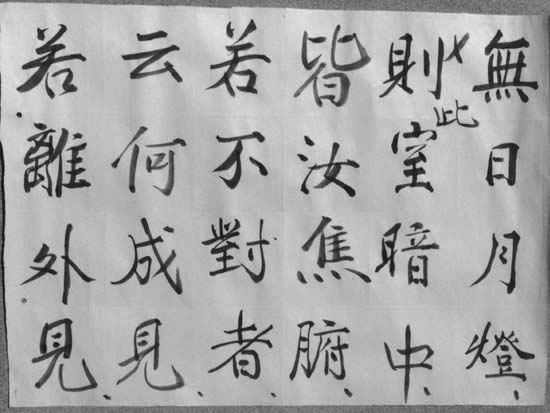 無日月燈
則此室暗中、
皆汝焦腑、
若不對者、
云何成見、
若離外見、